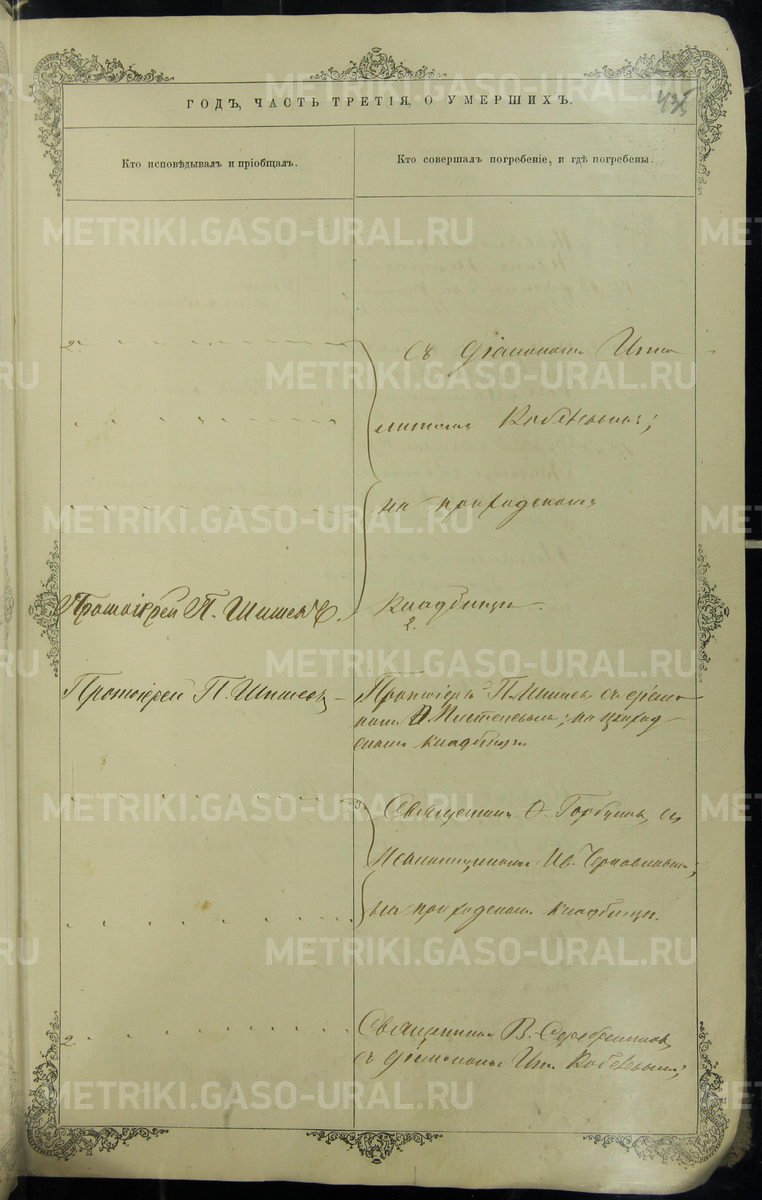 ГОДЪ, ЧАСТЬ ТРЕТІЯ, О УМЕРШИХЪ.
435
Кто исповѣдывалъ и пріобщалъ.
Кто совершалъ погребеніе, и гдѣ погребены.
съ діакономъ Иппо
литомъ
на приходскомъ
Протоіерей П. Шишевъ.
кладбищѣ.
2.
Протоіерей П. Шишевъ
Протоіерей П. Шишевъ съ діако
номъ на приход
скомъ кладбищѣ
Священникъ Ѳ. Горбуновъ съ
Ив.
на приходскомъ кладбищѣ.
2.
Священникъ В. Серебренниковъ
съ діакономъ Ип.
METRIKI.GASO-URAL.RU